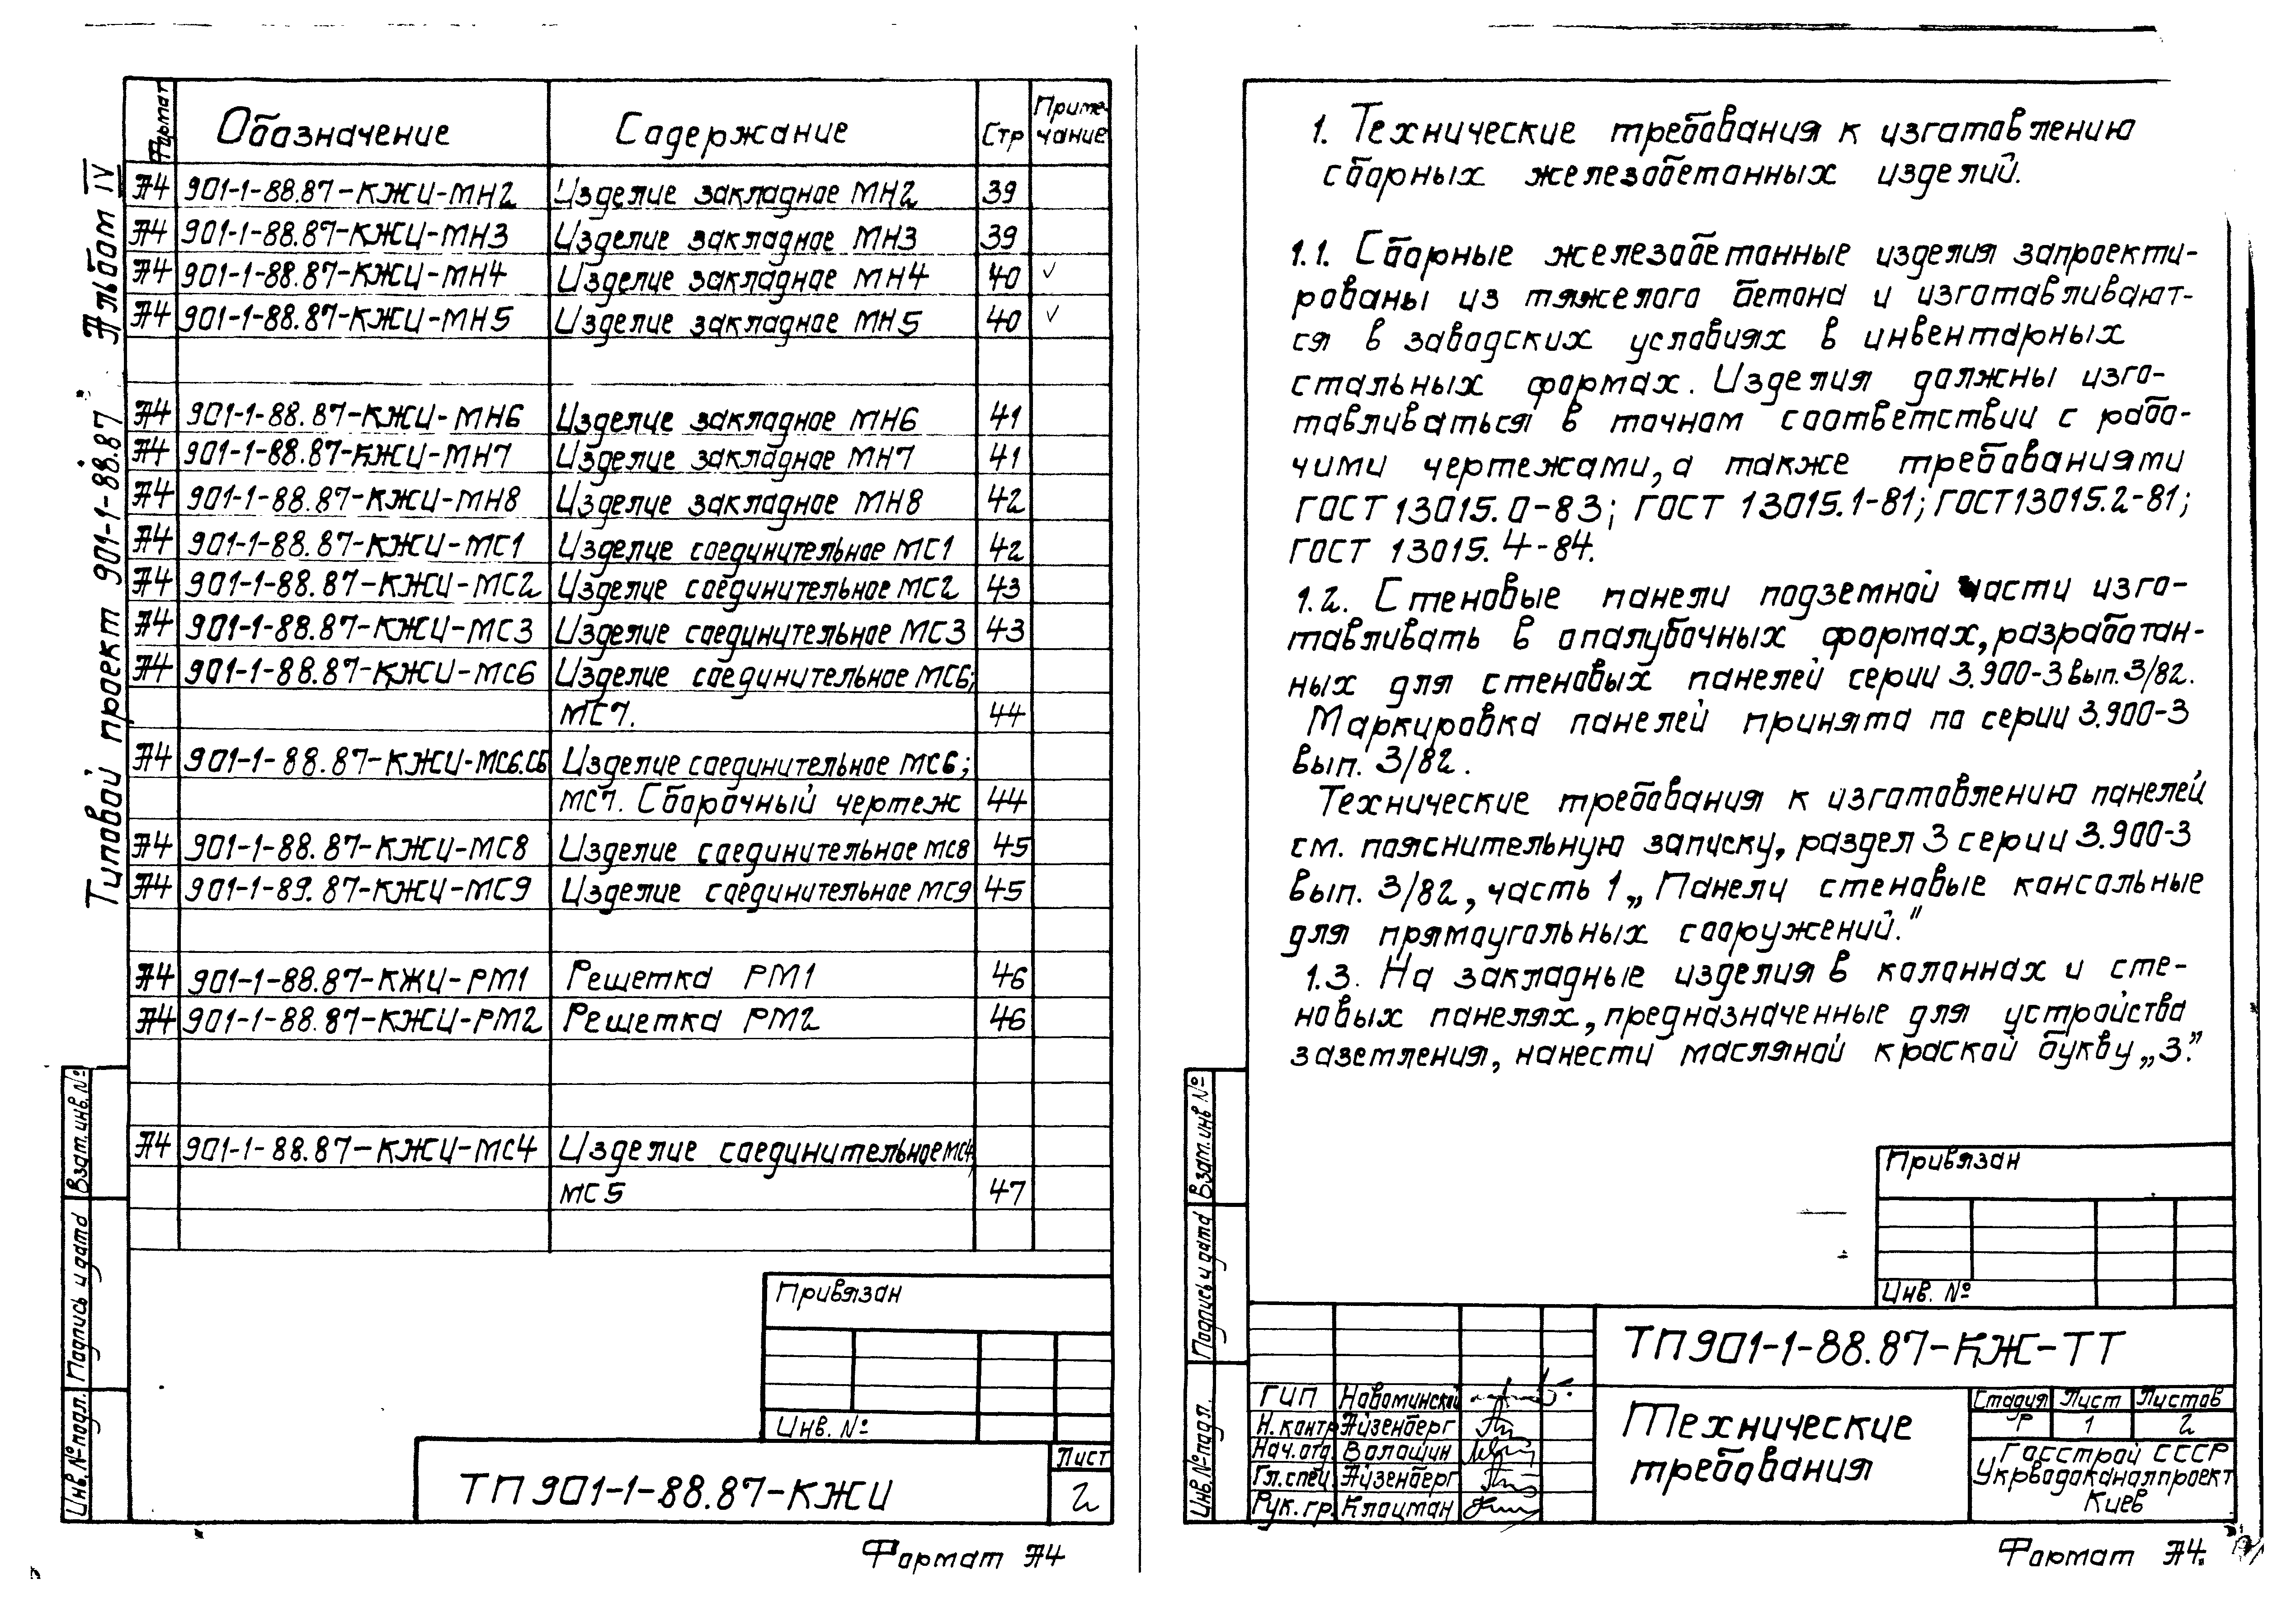 Типовой проект 901-1-88.87 Альбом IV
Формат Обозначение Содержание Стр Приме-
чание
А4 901-1-88.87-КЖИ-МН2 Изделие закладное МН2 39
А4 901-1-88.87-КЖИ-МН3 Изделие закладное МН3 39
А4 901-1-88.87-КЖИ-МН4 Изделие закладное МН4 40 ✓
А4 901-1-88.87-КЖИ-МН5 Изделие закладное МН5 40 ✓
А4 901-1-88.87-КЖИ-МН6 Изделие закладное МН6 41
А4 901-1-88.87-КЖИ-МН7 Изделие закладное МН7 41
А4 901-1-88.87-КЖИ-МН8 Изделие закладное МН8 42
А4 901-1-88.87-КЖИ-МС1 Изделие соединительное МС1 42
А4 901-1-88.87-КЖИ-МС2 Изделие соединительное МС2 43
А4 901-1-88.87-КЖИ-МС3 Изделие соединительное МС3 43
А4 901-1-88.87-КЖИ-МС6 Изделие соединительное МС6;
МС7. 44
А4 901-1-88.87-КЖИ-МС6.СБ Изделие соединительное МС6;
МС7. Сборочный чертеж 44
А4 901-1-88.87-КЖИ-МС8 Изделие соединительное МС8 45
А4 901-1-89.87-КЖИ-МС9 Изделие соединительное МС9 45
А4 901-1-88.87-КЖИ-РМ1 Решетка РМ1 46
А4 901-1-88.87-КЖИ-РМ2 Решетка РМ2 46
А4 901-1-88.87-КЖИ-МС4 Изделие соединительное МС4,
МС5 47
Взам. инв. №
Подпись и дата
Инв. № подл.
Привязан
Инв. №
ТП 901-1-88.87-КЖИ
Лист
2
Формат А4
1. Технические требования к изготовлению
сборных железобетонных изделий.
1.1. Сборные железобетонные изделия запроекти-
рованы из тяжелого бетона и изготавливают-
ся в заводских условиях в инвентарных
стальных формах. Изделия должны изго-
тавливаться в точном соответствии с рабо-
чими чертежами, а также требованиями
ГОСТ 13015.0-83; ГОСТ 13015.1-81; ГОСТ 13015.2-81;
ГОСТ 13015.4-84.
1.2. Стеновые панели подземной части изго-
тавливать в опалубочных формах, разработан-
ных для стеновых панелей серии 3.900-3 вып. 3/82.
Маркировка панелей принята по серии 3.900-3
вып. 3/82.
Технические требования к изготовлению панелей
см. пояснительную записку, раздел 3 серии 3.900-3
вып. 3/82, часть 1 „Панели стеновые консольные
для прямоугольных сооружений."
1.3. На закладные изделия в колоннах и сте-
новых панелях, предназначенные для устройства
заземления, нанести масляной краской букву „З".
Взам. инв №
Подпись и дата
Инв. № подл.
Привязан
Инв. №
ТП 901-1-88.87-КЖ-ТТ
ГИП Новоминский
Н. контр Айзенберг
Нач. отд. Волошин
Гл. спец. Айзенберг
Рук. гр. Клоцман
Технические
требования
Стадия Лист Листов
Р 1 2
Госстрой СССР
Укрводоканалпроект
Киев
Формат А4.